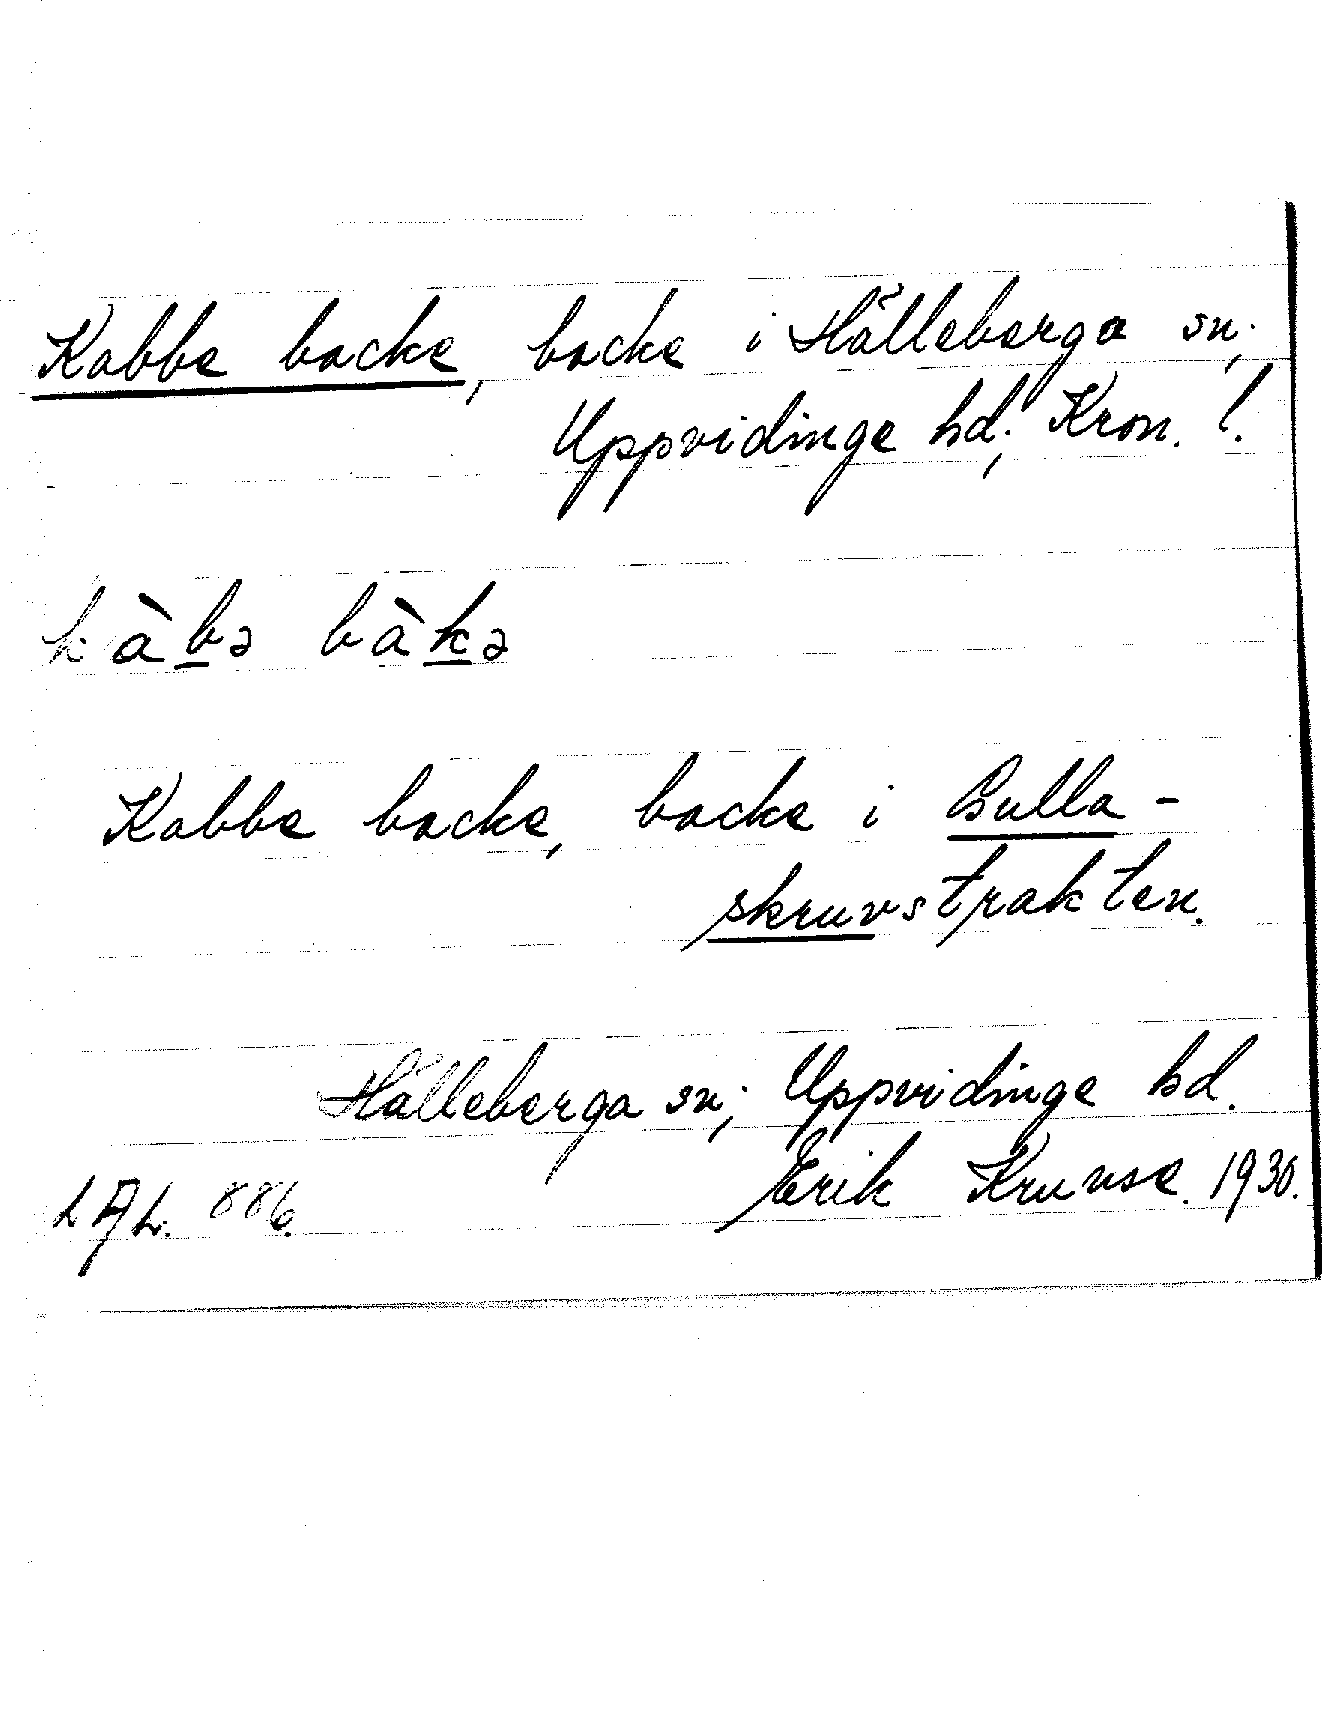 Kabbe backe, backe i Hälleberga sn;
Uppvidinge hd; Kron. l.
kàbə bàkə
Kabbe backe, backe i Bulla-
skruvstrakten.
Hälleberga sn; Uppvidinge hd.
Erik Krunse. 1930.
LAL. 886.